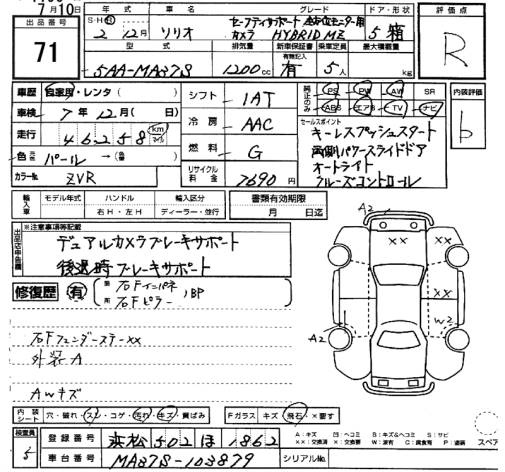 7月10日
出品番号 71
S・H・R 年 車名 グレード ドア・形状 評価点
2 12月 ソリオ セーフティサポート 全方位モニター用カメラ HYBRID MZ 5 箱 R
型式 排気量 新車保証書 乗車定員 最大積載量
5AA-MA37S 1200cc 有無記入 有 5人 kg
車歴 自家用・レンタ( ) シフト 1AT 純正のみ PS PW AW SR 内装評価
車検 7年12月( 日) 冷房 AAC ABS エアB TV ナビ b
走行 46258 km マイル 燃料 G セールスポイント
色 パール →( 色) リサイクル料金 7690円
カラーNo. ZVR
キーレスプッシュスタート
両側パワースライドドア
オートライト
クルーズコントロール
輸入車 モデル年式 ハンドル 輸入区分 書類有効期限
年 右H・左H ディーラー・並行 月 日迄
出品店申告欄 ※注意事項等記載
デュアルカメラブレーキサポート
後退時ブレーキサポート
修復歴 有 右Fインパネ 右Fピラー BP
右Fフェンダーステーxx
外装A
AWキズ
A2
XX XX
XX
A2 W2
内装シート 穴・破れ・スレ・コゲ・汚れ・キズ・黄ばみ Fガラス キズ 飛石・×要す
A:キズ B:キズ&ヘコミ S:サビ
検査員 登録番号 浜松 502 ほ 1862
車台番号 MA37S-103879 シリアルNo. スペア